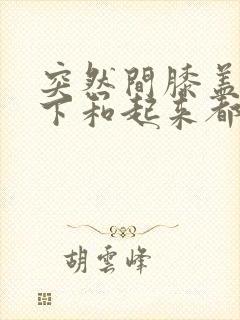 突然間膝蓋
下和起来都
胡雲峰